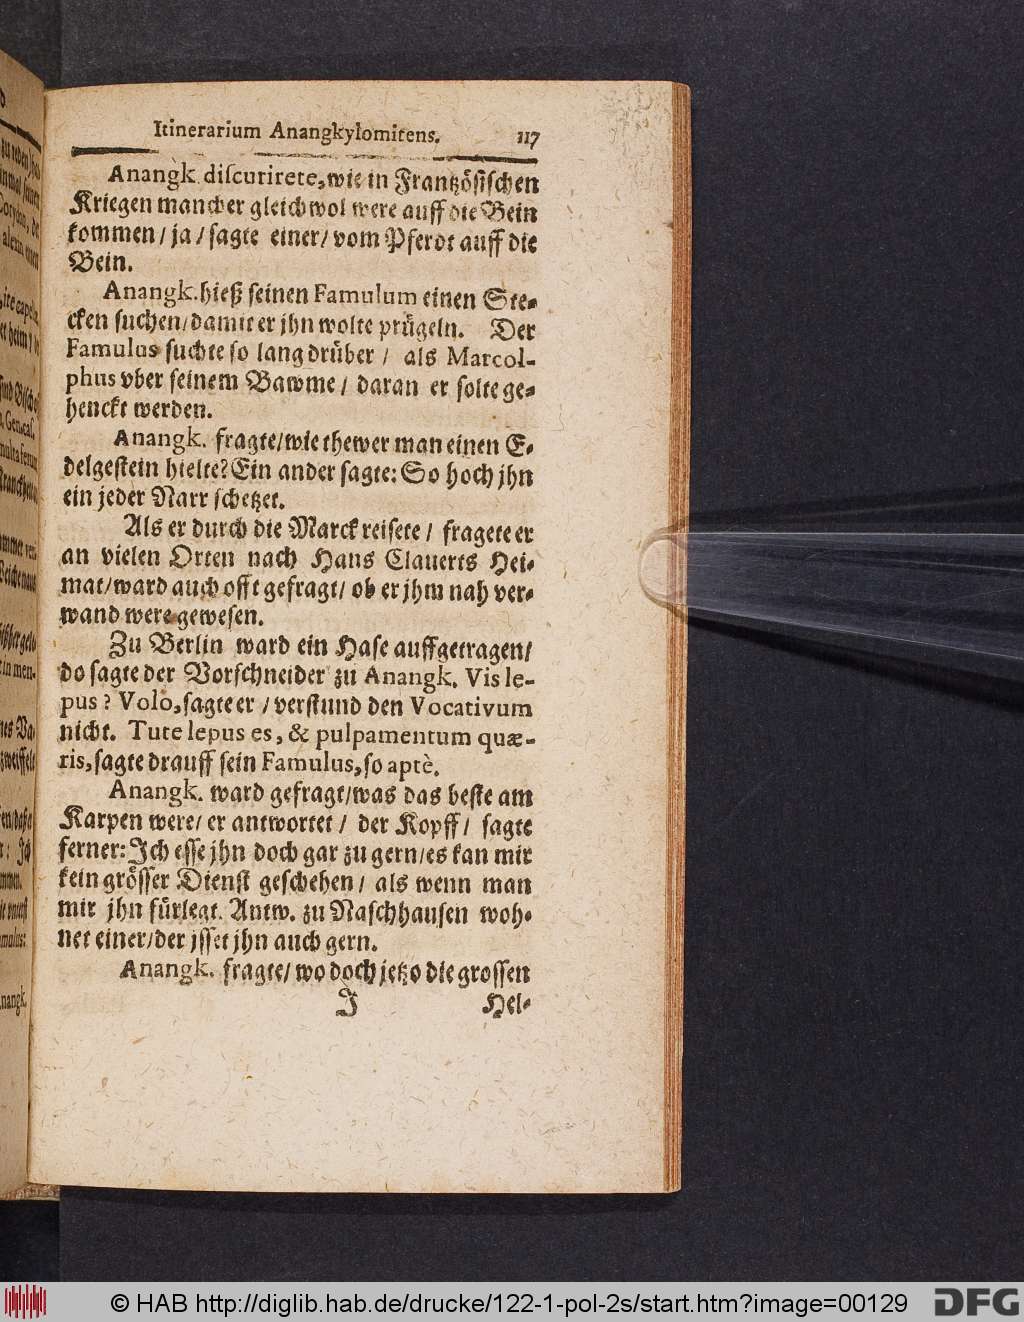 Itinerarium Anangkylomitens. 117
Anangk. discurirete, wie in Frantzösischen
Kriegen mancher gleichwol were auff die Bein
kommen / ja / sagte einer / vom Pferdt auff die
Bein.
Anangk. hieß seinen Famulum einen Ste-
cken suchen / damit er jhn wolte prügeln. Der
Famulus suchte so lang drüber / als Marcol-
phus vber seinem Bawme / daran er solte ge-
henckt werden.
Anangk. fragte / wie thewer man einen E-
delgestein hielte? Ein ander sagte: So hoch jhn
ein jeder Narr schetzet.
Als er durch die Marck reisete / fragete er
an vielen Orten nach Hans Clauerts Hei-
mat / ward auch offt gefragt / ob er jhm nah ver-
wand were gewesen.
Zu Berlin ward ein Hase auffgetragen /
do sagte der Vorschneider zu Anangk. Vis le-
pus? Volo, sagte er / verstund den Vocativum
nicht. Tute lepus es, & pulpamentum quæ-
ris, sagte drauff sein Famulus, so aptè.
Anangk. ward gefragt / was das beste am
Karpen were / er antwortet / der Kopff / sagte
ferner: Ich esse jhn doch gar zu gern / es kan mir
kein grösser Dienst geschehen / als wenn man
mir jhn fürlegt. Antw. zu Naschhausen woh-
net einer / der jsset jhn auch gern.
Anangk. fragte / wo doch jetzo die grossen
J Hel-
© HAB http://diglib.hab.de/drucke/122-1-pol-2s/start.htm?image=00129
DFG